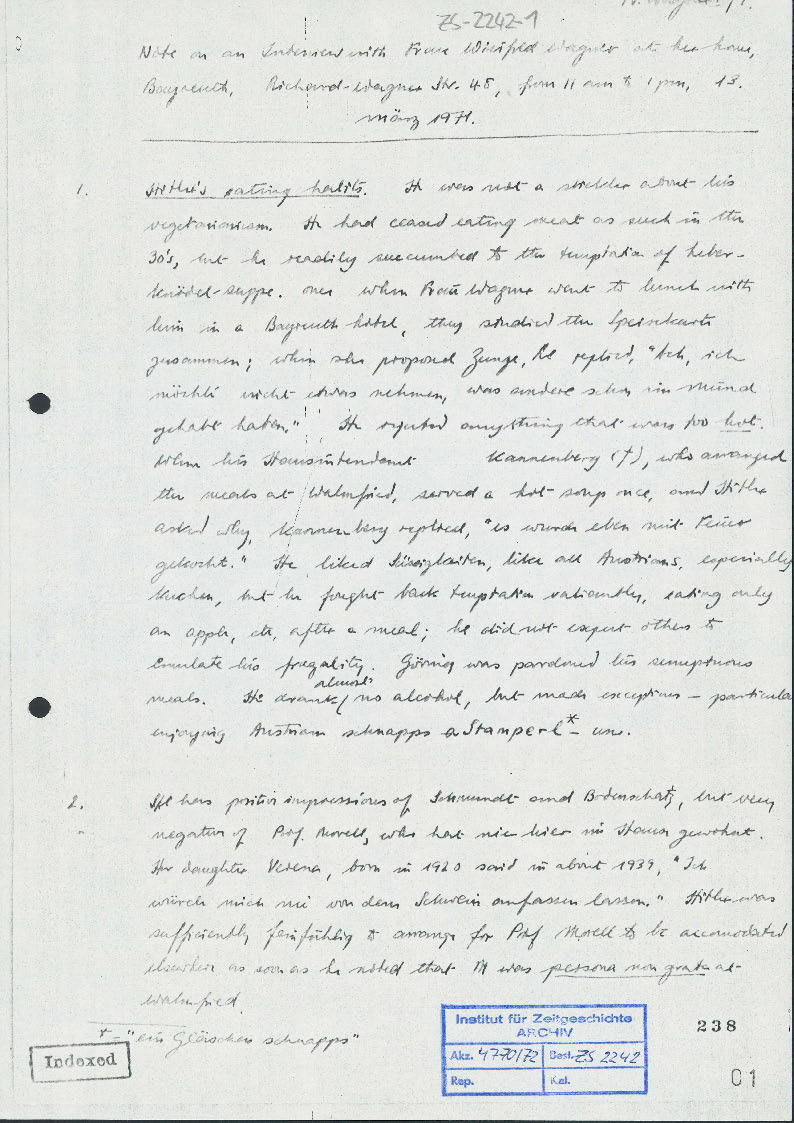 ZS-2242-1
Note on an Interview with Frau Winifred Wagner at her home,
Bayreuth, Richard-Wagner Str. 48, from 11 am to 1 pm, 13.
März 1971.
1. Hitler's eating habits. He was not a stickler about his
vegetarianism. He had ceased eating meat as such in the
30's, but he readily succumbed to the temptation of Leber-
knödel-suppe. Once when Frau Wagner went to lunch with
him in a Bayreuth hotel, they studied the Speisekarte
zusammen; when she proposed Zunge, he replied, "Ach, ich
möchte nicht etwas nehmen, was andere schon im Mund
gehabt haben." He rejected anything that was too hot.
When his Hausintendant Kannenberg (†), who arranged
the meals at Wahnfried, served a hot soup once, and Hitler
asked why, Kannenberg replied, "es wurde eben mit Feuer
gekocht." He liked Süssigkeiten, like all Austrians, especially
Kuchen, but he fought back temptation valiantly, eating only
an apple, etc, after a meal; he did not expect others to
emulate his frugality. Göring was pardoned his sumptuous
meals. He drank almost no alcohol, but made exceptions – particula
enjoying Austrian schnapps a Stanperl* – usw.
2. She has positive impressions of Schmundt and Bodenschatz, but very
negative of Prof. Morell, who hat nie hier im Hause gewohnt.
Her daughter Verena, born in 1920 said in about 1939, "Ich
würde mich nie von dem Schwein anfassen lassen." Hitler was
sufficiently feinfühlig to arrange for Prof Morell to be accomodated
elsewhere as soon as he noted that M was persona non grata at
Wahnfried.
* – "ein Gläschen schnapps"
Indexed
Institut für Zeitgeschichte
ARCHIV
Akz. 4770/72 Best. ZS 2242
Rep. Kat.
238
01